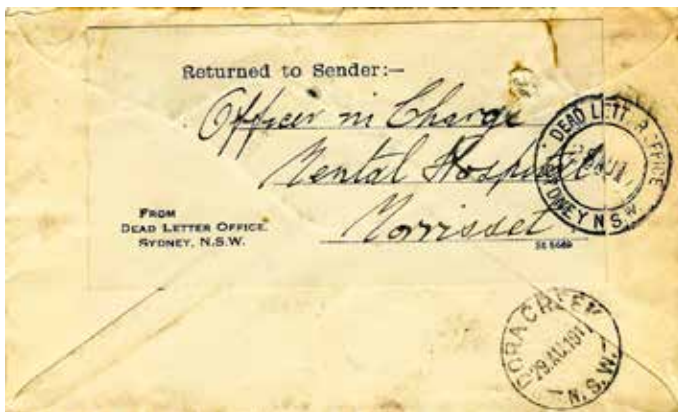 Returned to Sender:—
Officer in Charge
Mental Hospital
Morrisset
FROM
DEAD LETTER OFFICE,
SYDNEY, N.S.W.
DEAD LETTER OFFICE
SYDNEY N.S.W.
DORA CREEK
29.AU.191
N.S.W.